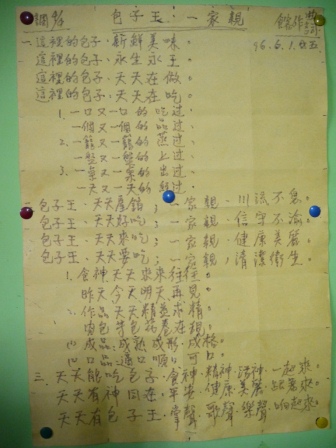 調影 包子王.一家親 館張
96.6.1.
一.這裡的包子.新鮮美味.
這裡的包子.永生永王.
這裡的包子.天天在做.
這裡的包子.天天在吃.
1.一口又一口的吃過.
一個又一個的品過.
2.一籠又一籠的蒸過.
一盤又一盤的上過.
3.一車又一車的出過.
一天又一天的經過.
二.包子王.天天 ;一家親.川流不息.
包子王.天天好吃;一家親.信守不渝.
包子王.天天來吃;一家親,健康美麗.
包子王.天天要吃;一家親,清潔衛生.
1.食神天天來來往往.
昨天今天明天再見.
2.作品天天精益求精.
肉包 包花卷在親.
成品:成熟成形.成格.
口品:適口順口可口.
三.天天能吃包子.食神.精神 神.一起來.
天天有神同在.平安.健康美麗.
天天有包子王.掌聲.歌聲.樂聲. 起來.